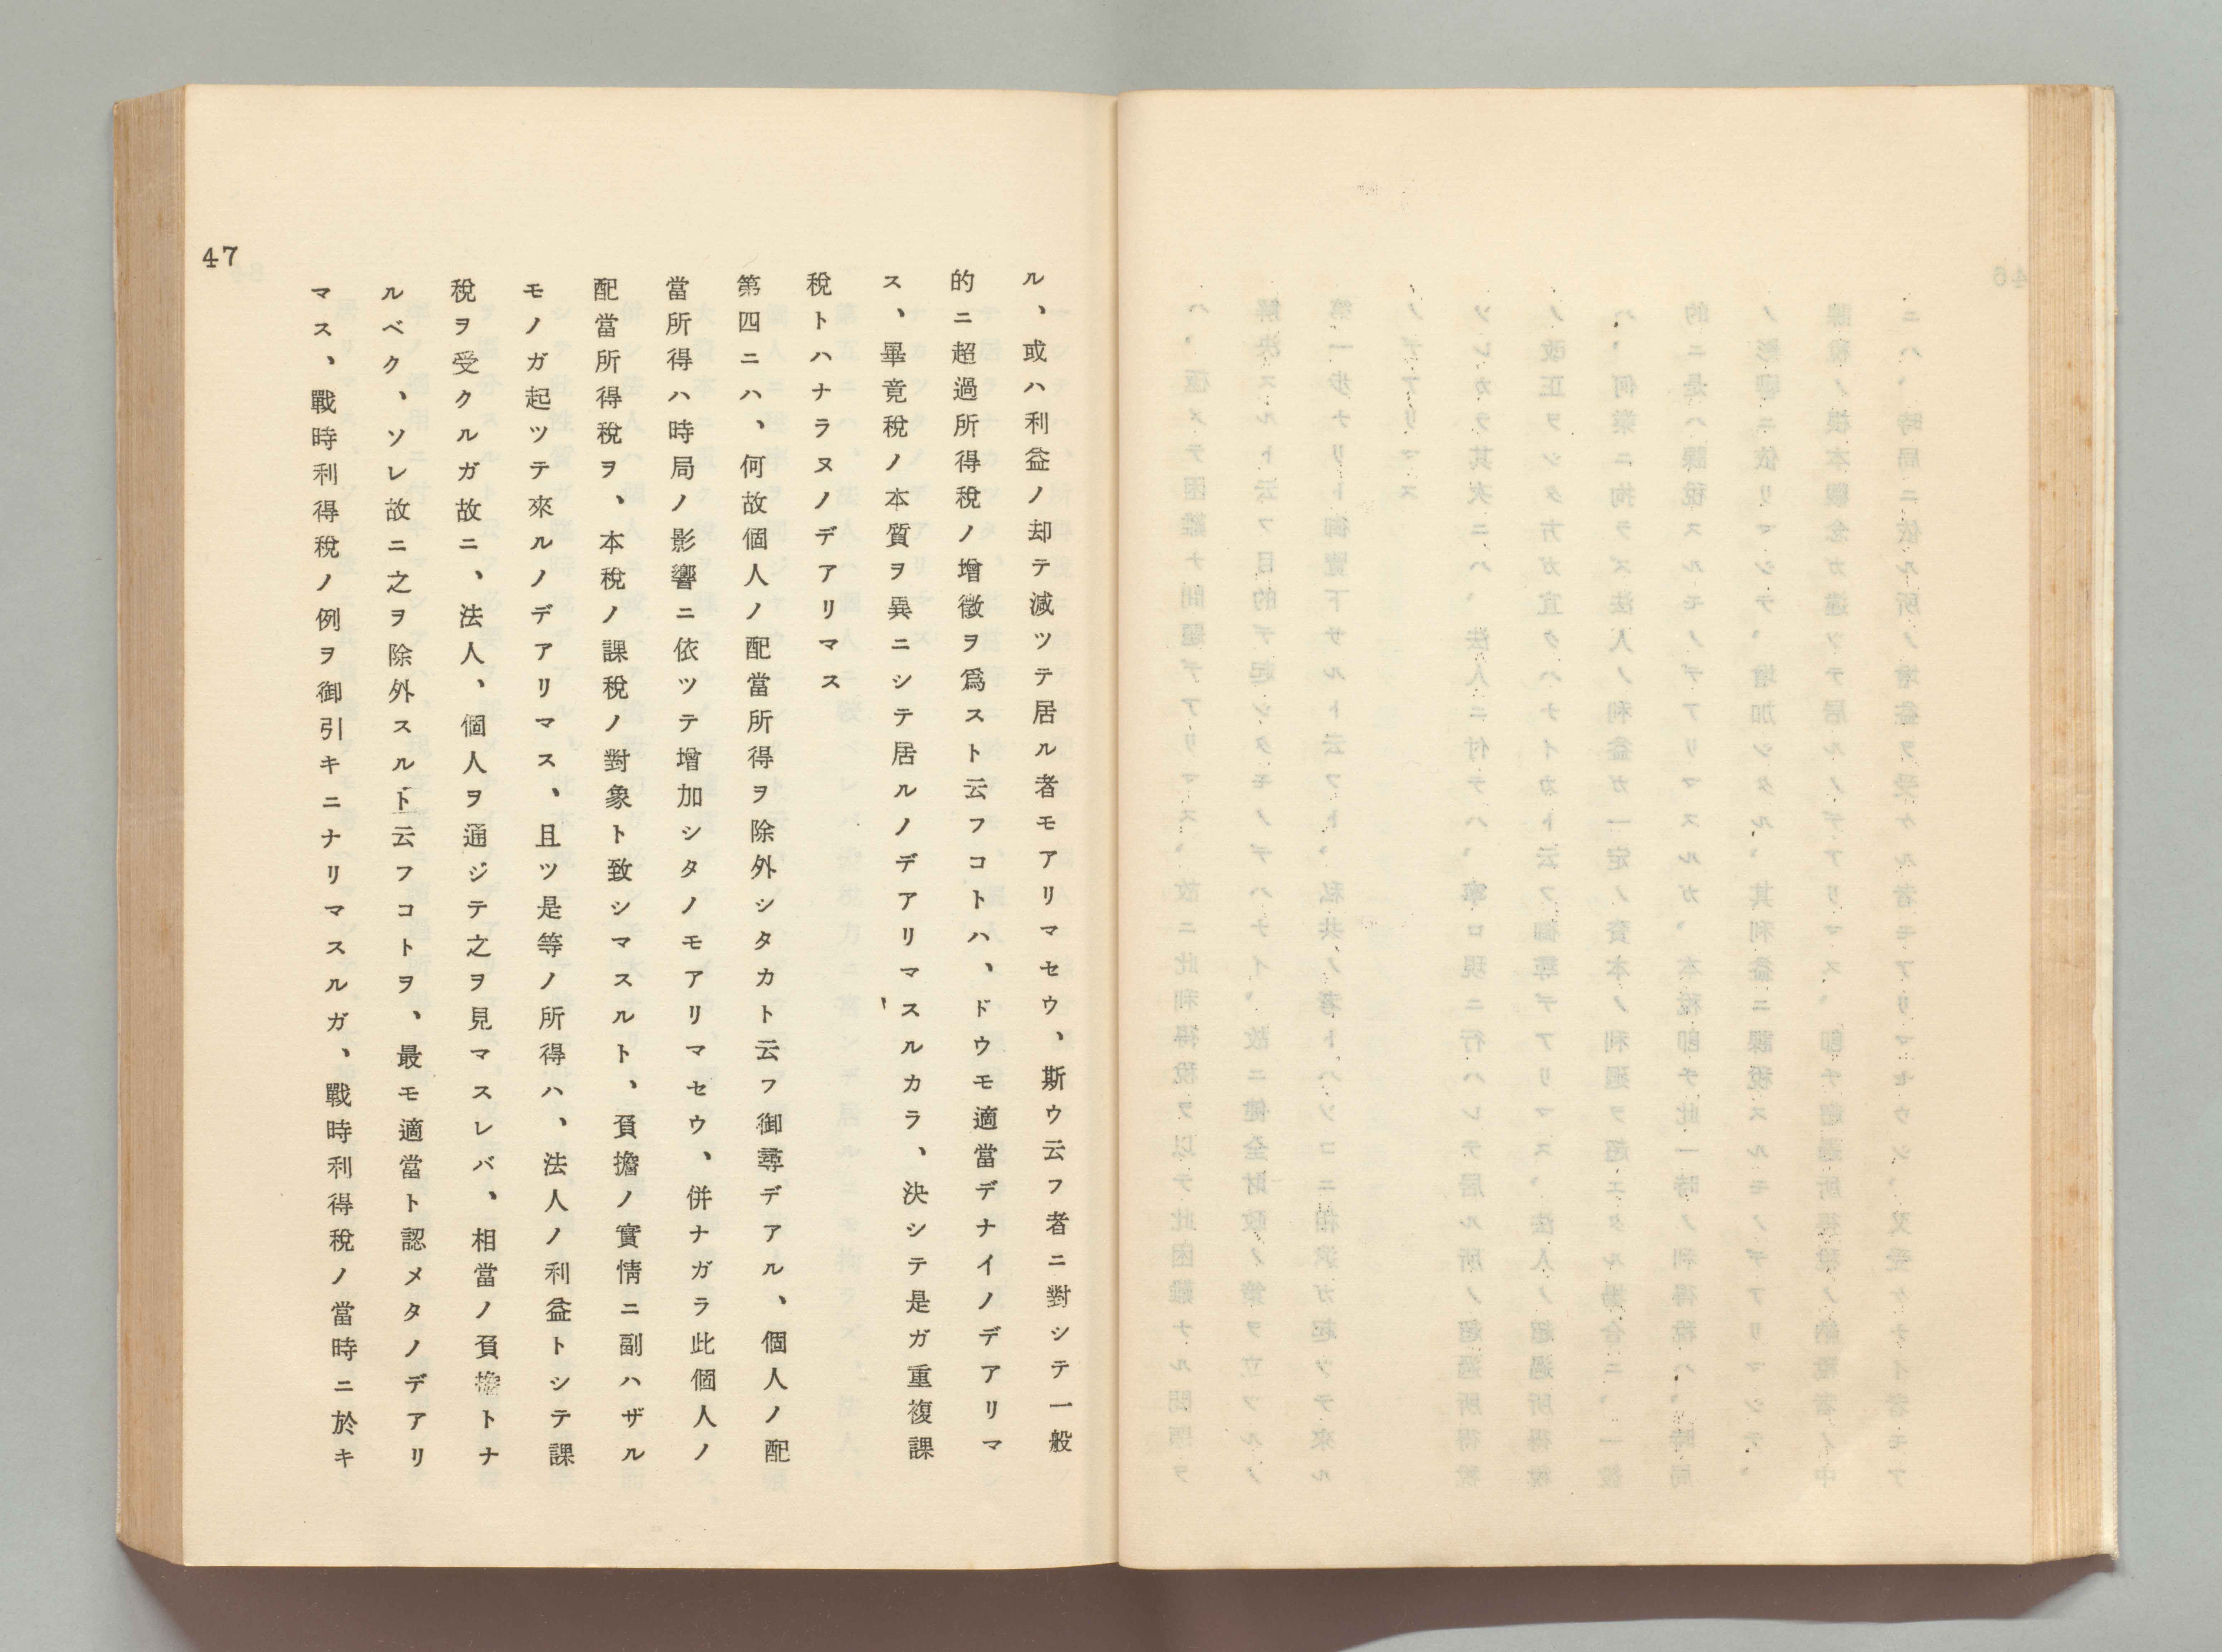 ル、或ハ利益ノ却テ減ツテ居ル者モアリマセウ、斯ウ云フ者ニ對シテ一般
的ニ超過所得稅ノ增徵ヲ爲スト云フコトハ、ドウモ適當デナイノデアリマ
ス、畢竟稅ノ本質ヲ異ニシテ居ルノデアリマスルカラ、決シテ是ガ重複課
稅トハナラヌノデアリマス
第四ニハ、何故個人ノ配當所得ヲ除外シタカト云フ御尋デアル、個人ノ配
當所得ハ時局ノ影響ニ依ツテ增加シタノモアリマセウ、併ナガラ此個人ノ
配當所得稅ヲ、本稅ノ課稅ノ對象ト致シマスルト、負擔ノ實情ニ副ハザル
モノガ起ツテ來ルノデアリマス、且ツ是等ノ所得ハ、法人ノ利益トシテ課
稅ヲ受クルガ故ニ、法人、個人ヲ通ジテ之ヲ見マスレバ、相當ノ負擔トナ
ルベク、ソレ故ニ之ヲ除外スルト云フコトヲ、最モ適當ト認メタノデアリ
マス、戰時利得稅ノ例ヲ御引キニナリマスルガ、戰時利得稅ノ當時ニ於キ
47